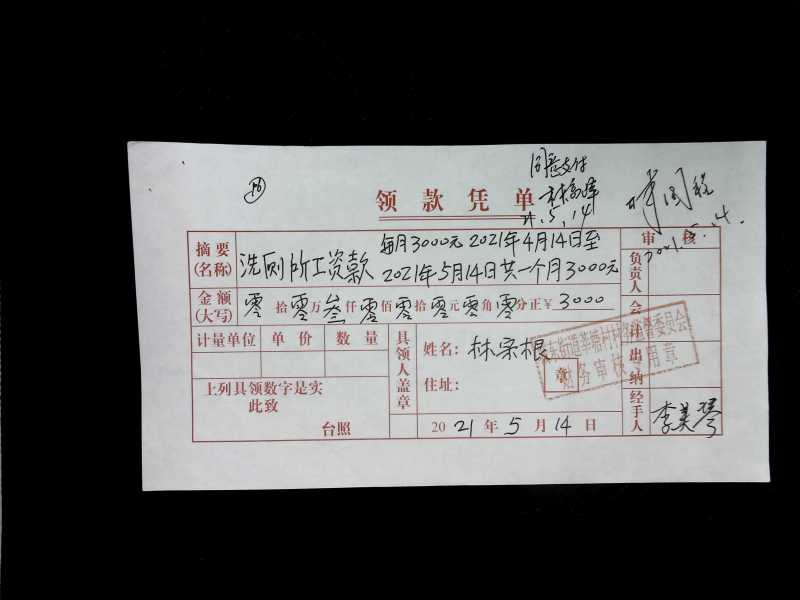 16
同意支付
21.5.14
2021.5.14.
领款凭单
摘要(名称) 洗厕所工资款 每月3000元 2021年4月14日至
2021年5月14日共一个月3000元
审核
负责人
金额(大写) 零拾零万叁仟零佰零拾零元零角零分正¥3000
会计
计量单位 单价 数量
具领人盖章
姓名: 林宗根 章
住址:
出纳
街道革塘村村务监督委员会
财务审核专用章
上列具领数字是实
此致
台照
2021年5月14日
经手人 李美琴